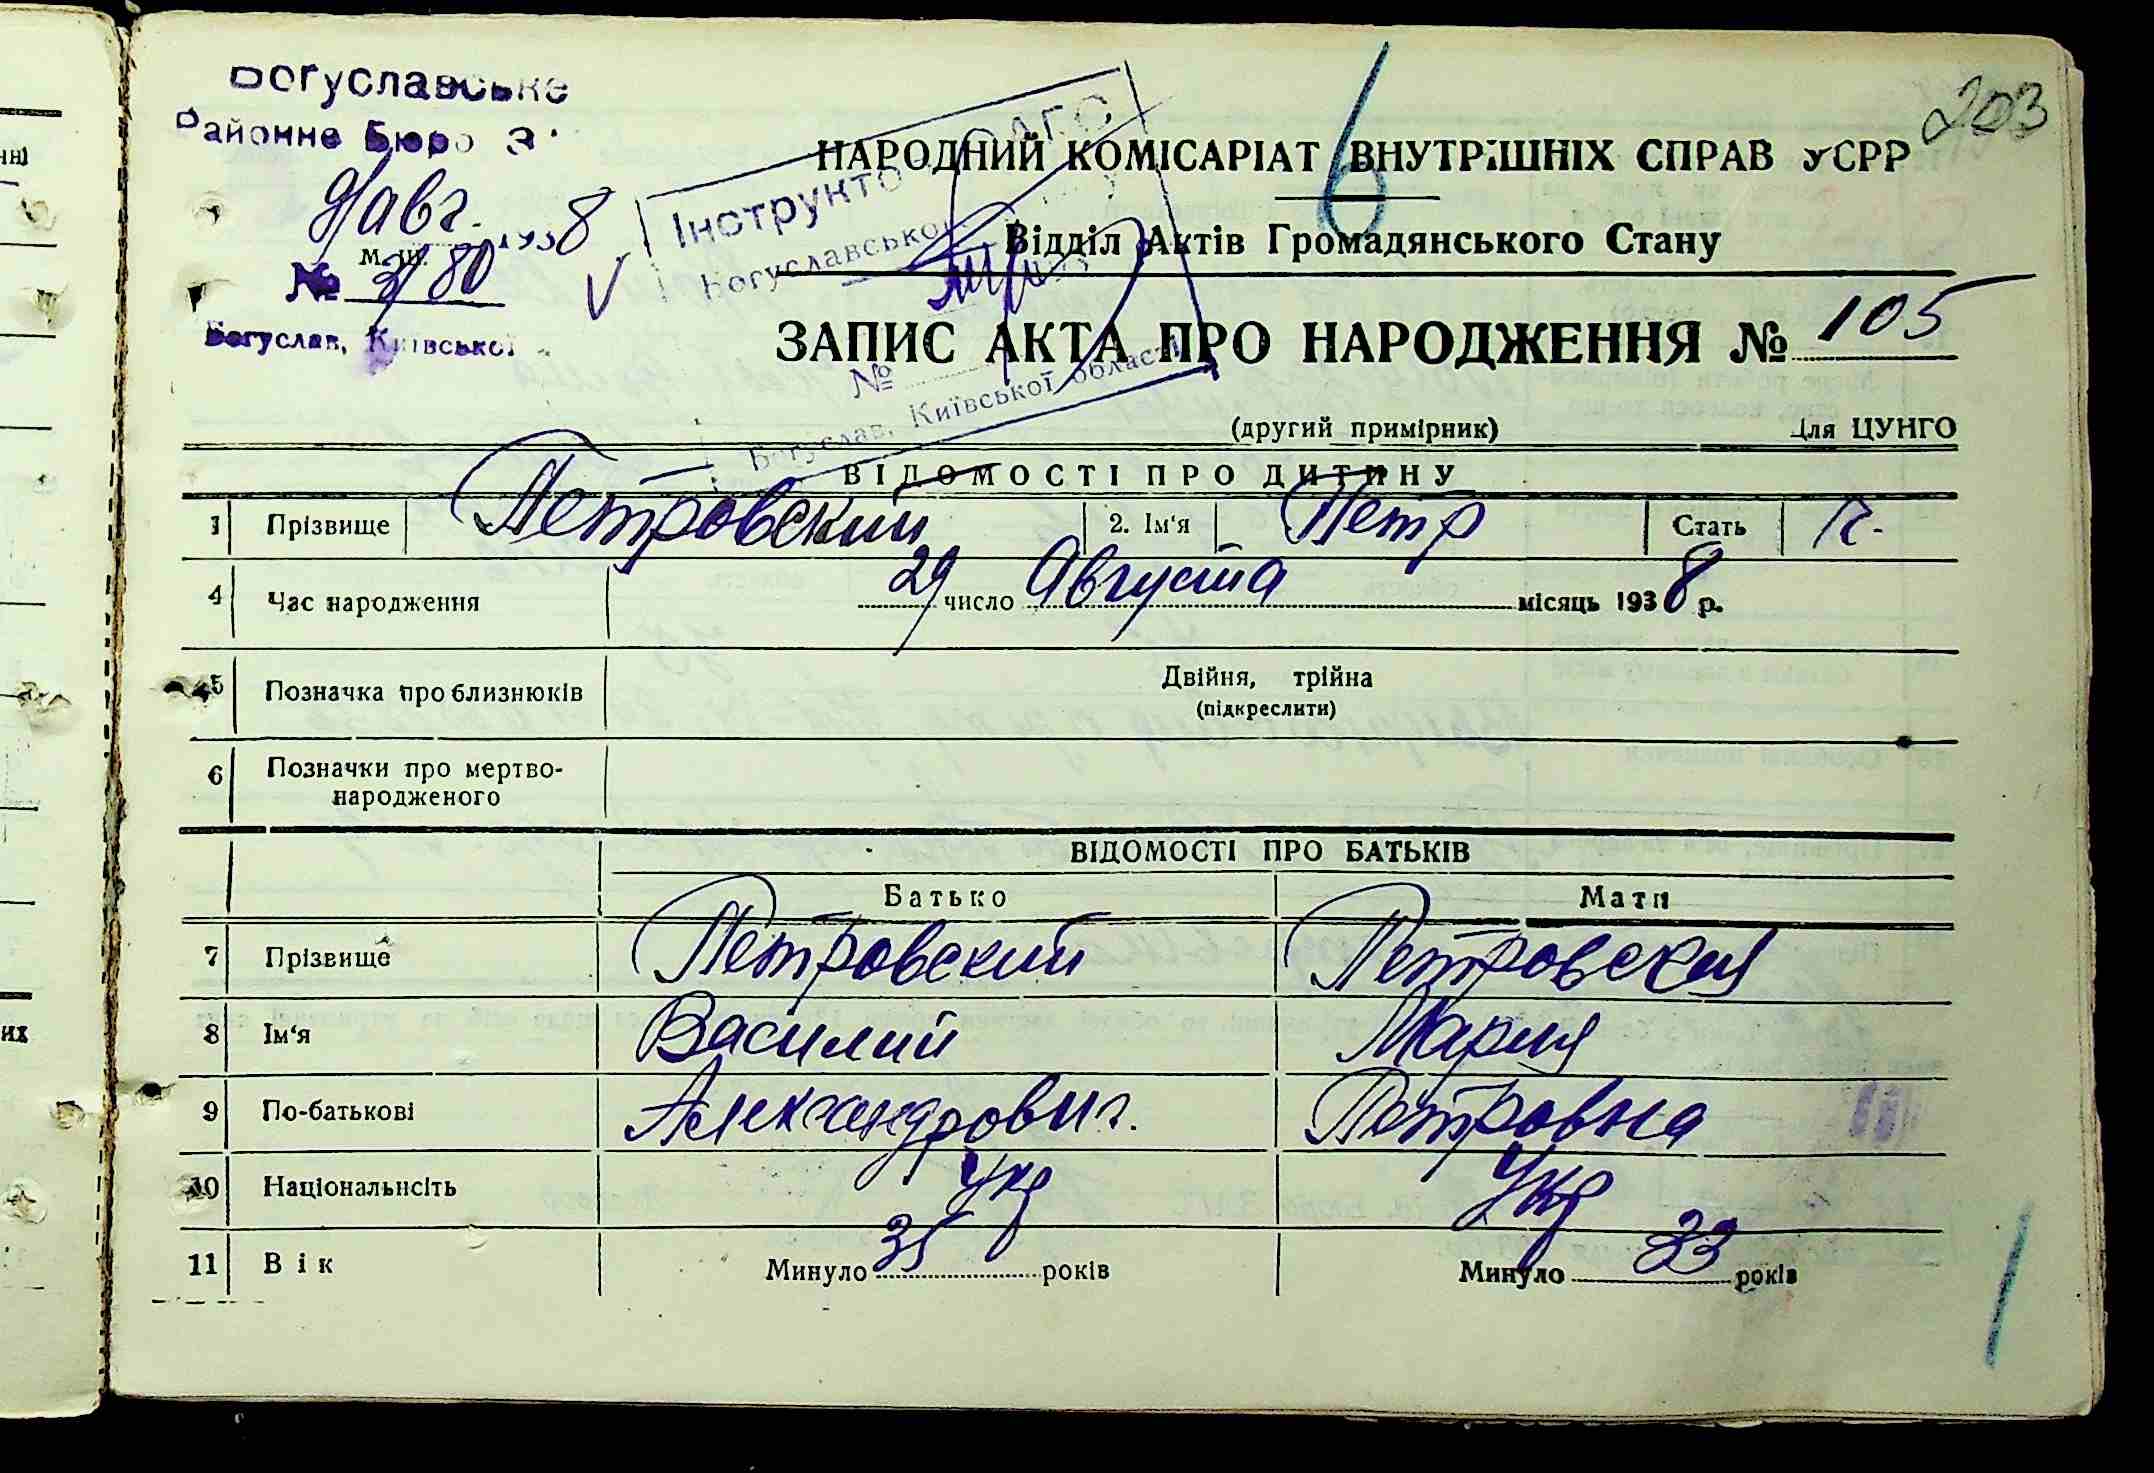 Богуславське
Районне Бюро
авг. 1938
М. П.
№ 80
Богуслав, Київської
203
6
НАРОДНИЙ КОМІСАРІАТ ВНУТРІШНІХ СПРАВ УСРР
Відділ Актів Громадянського Стану
Інструктор ЗАГС
Богуславського
№
Богуслав, Київської області
ЗАПИС АКТА ПРО НАРОДЖЕННЯ № 105
(другий примірник) Для ЦУНГО
ВІДОМОСТІ ПРО ДИТИНУ
1 Прізвище Петровский 2. Ім'я Петр Стать
4 Час народження 29 число Августа місяць 1938 р.
5 Позначка про близнюків Двійня, трійна
(підкреслити)
6 Позначки про мертво-
народженого
ВІДОМОСТІ ПРО БАТЬКІВ
Батько Мати
7 Прізвище Петровский Петровская
8 Ім'я Василий Мария
9 По-батькові Александрович. Петровна
10 Національнсіть Укр Укр
11 Вік Минуло 35 років Минуло 33 років